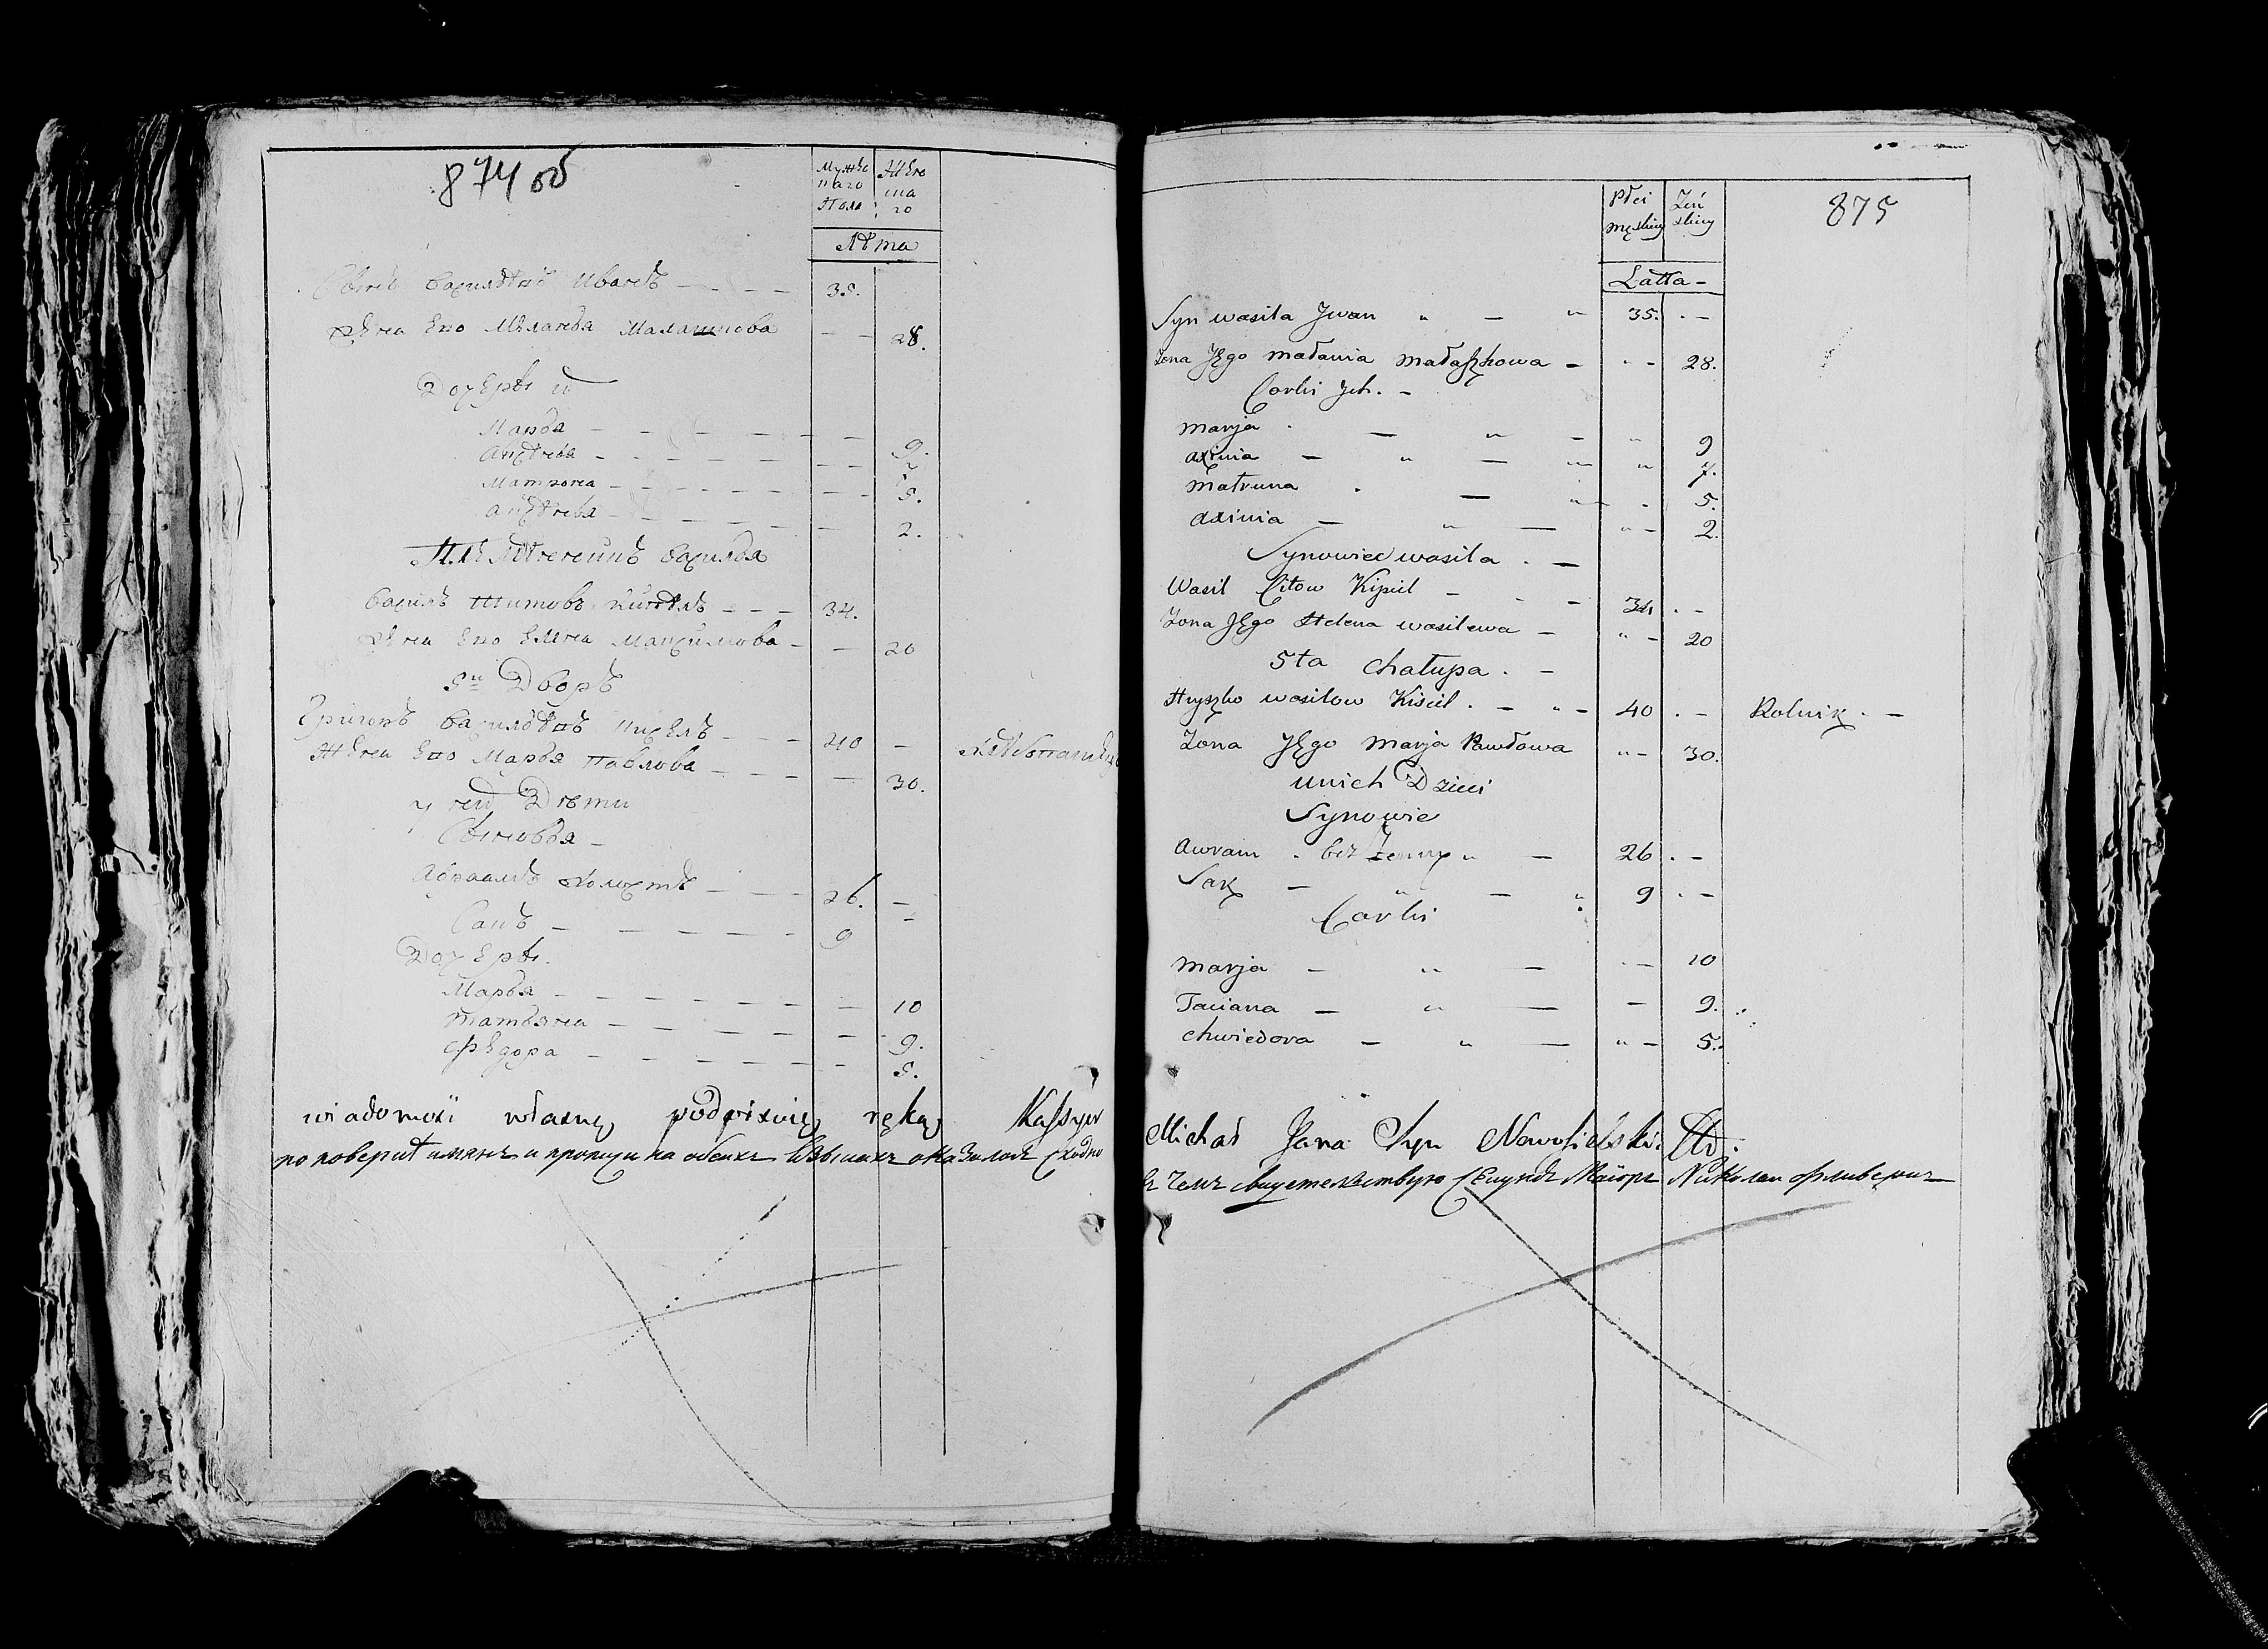 874 об
Мужескаго Пола
Женскаго
Лѣта
Сынъ Василевъ Иванъ — — — 35.
Жена Его Меланья Малашкова — — 28.
Дочери их
Марья — — — — 9.
Аксенья — — — — 7
Матрона — — — — 5.
Аксенья — — — — 2.
Племенникъ Василья
Василь Титовъ — — — 34.
Жена Его Елена — — 20
5й Дворъ
Василевъ Кисель — — — 40 —
Жена Его Марья Павлова — — — 30.
у них Дети
Сыновья —
Абраамъ холостъ — — 26. —
Сакъ — — — — 9 —
Дочери.
Марья — — — — 10
Татьяна — — — — 9.
Федора — — — — 5.
wiadomości własną podpisuię ręką
по поверке имянъ и прописи на обеихъ языкахъ оказалось сходно
875
Płci męskiey
Żeńskiey
Latta —
Syn wasila Jwan „ — „ 35. . —
Zona JEgo małania małaszkowa — . - 28.
Corki Jch. —
marja . — „ — „ 9
axinia — „ — „ „ 7.
matruna . — „ . 5.
axinia — „ — „ — 2.
Synowiec wasila . —
Wasil Citow Kisiel — - — 34 . —
Zona JEgo Helena wasilewa — „ — 20
5ta chałupa . —
Hryszko wasilow Kisiel . — „ — 40 . — Rolnik . —
Zona JEgo marja Pawłowa „ — 30.
unich Dzieci
Synowie
Awram . bez Zenny „ — 26 . —
Sak — „ — „ 9 . —
Corki
marja — „ — . — 10
Taciana — „ — — 9.
chwiedora — „ — „ — 5.
Michał Jana Syn Nowosielski
въ чемъ свидетельствую Секундъ Маіоръ Николаи